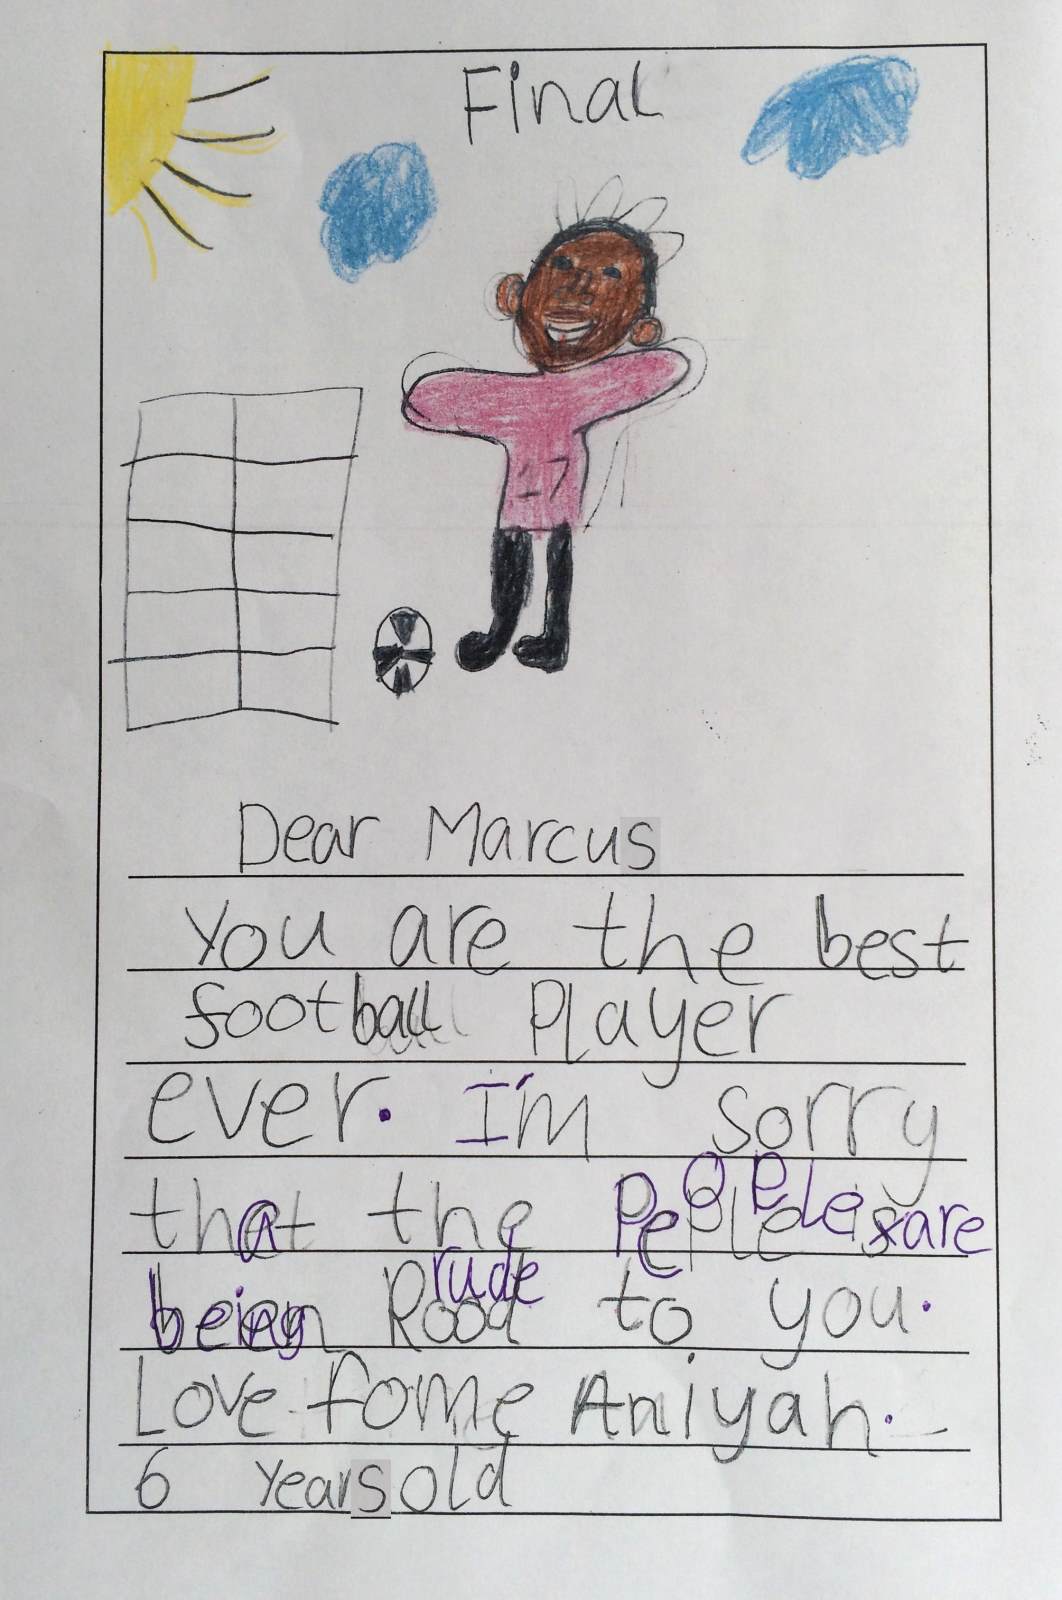 Final
17
Dear Marcus
you are the best
football Player
ever. I'm sorry
that the People are
being rude to you.
Love fome Aniyah.
6 years old